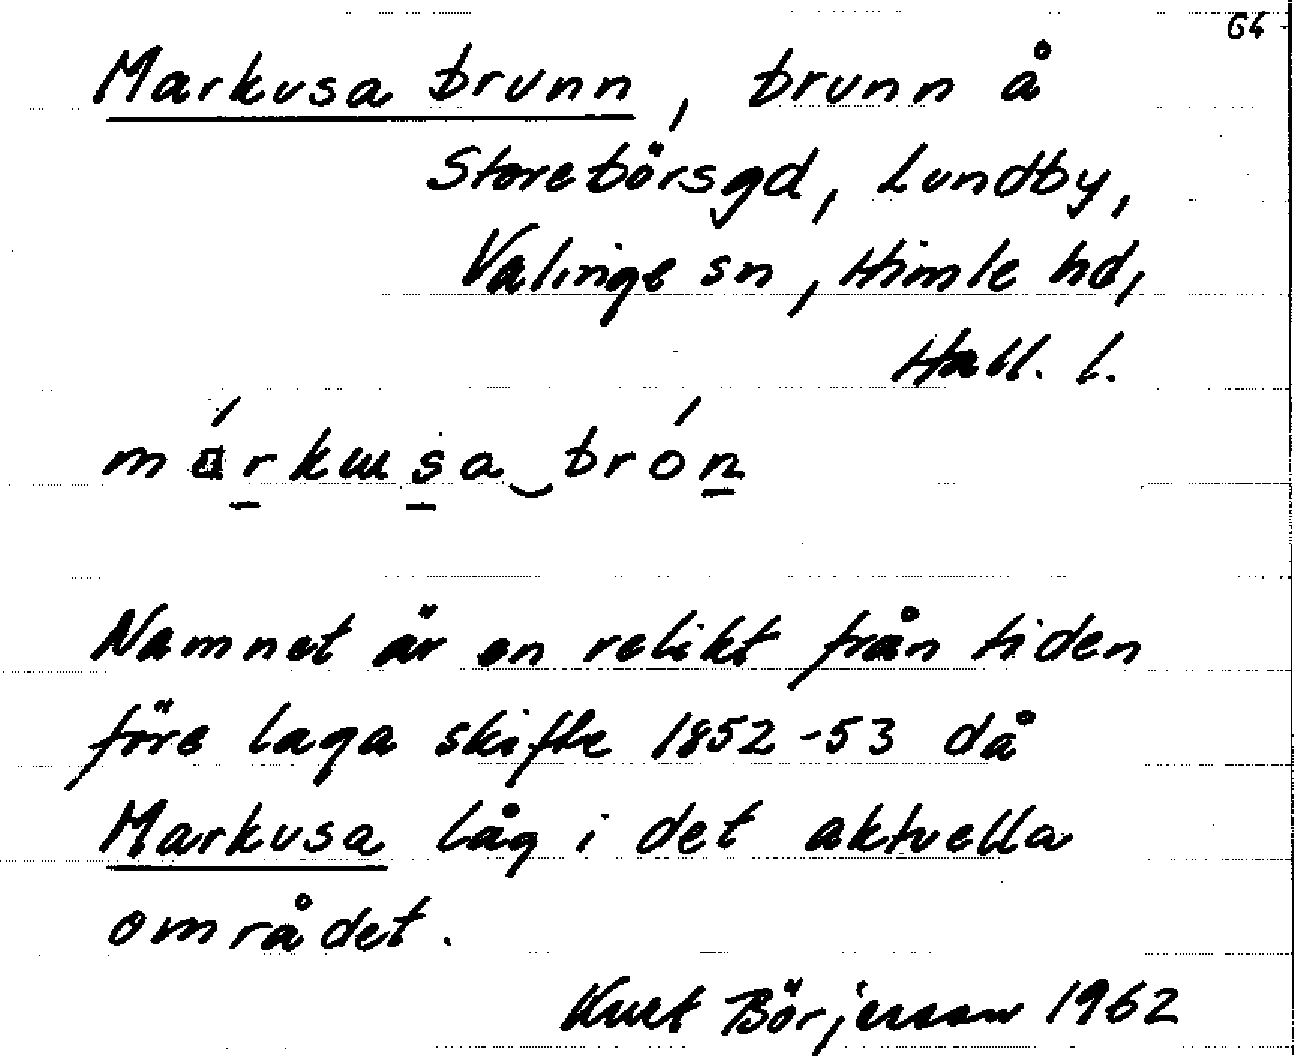 64
Markusa brunn, brunn å
Storebörsgd, Lundby,
Valinge sn, Himle hd,
Hall. l.
márkɯsa‿brón
Namnet är en relikt från tiden
före laga skifte 1852-53 då
Markusa låg i det aktuella
området.
Kurt Börjesson 1962